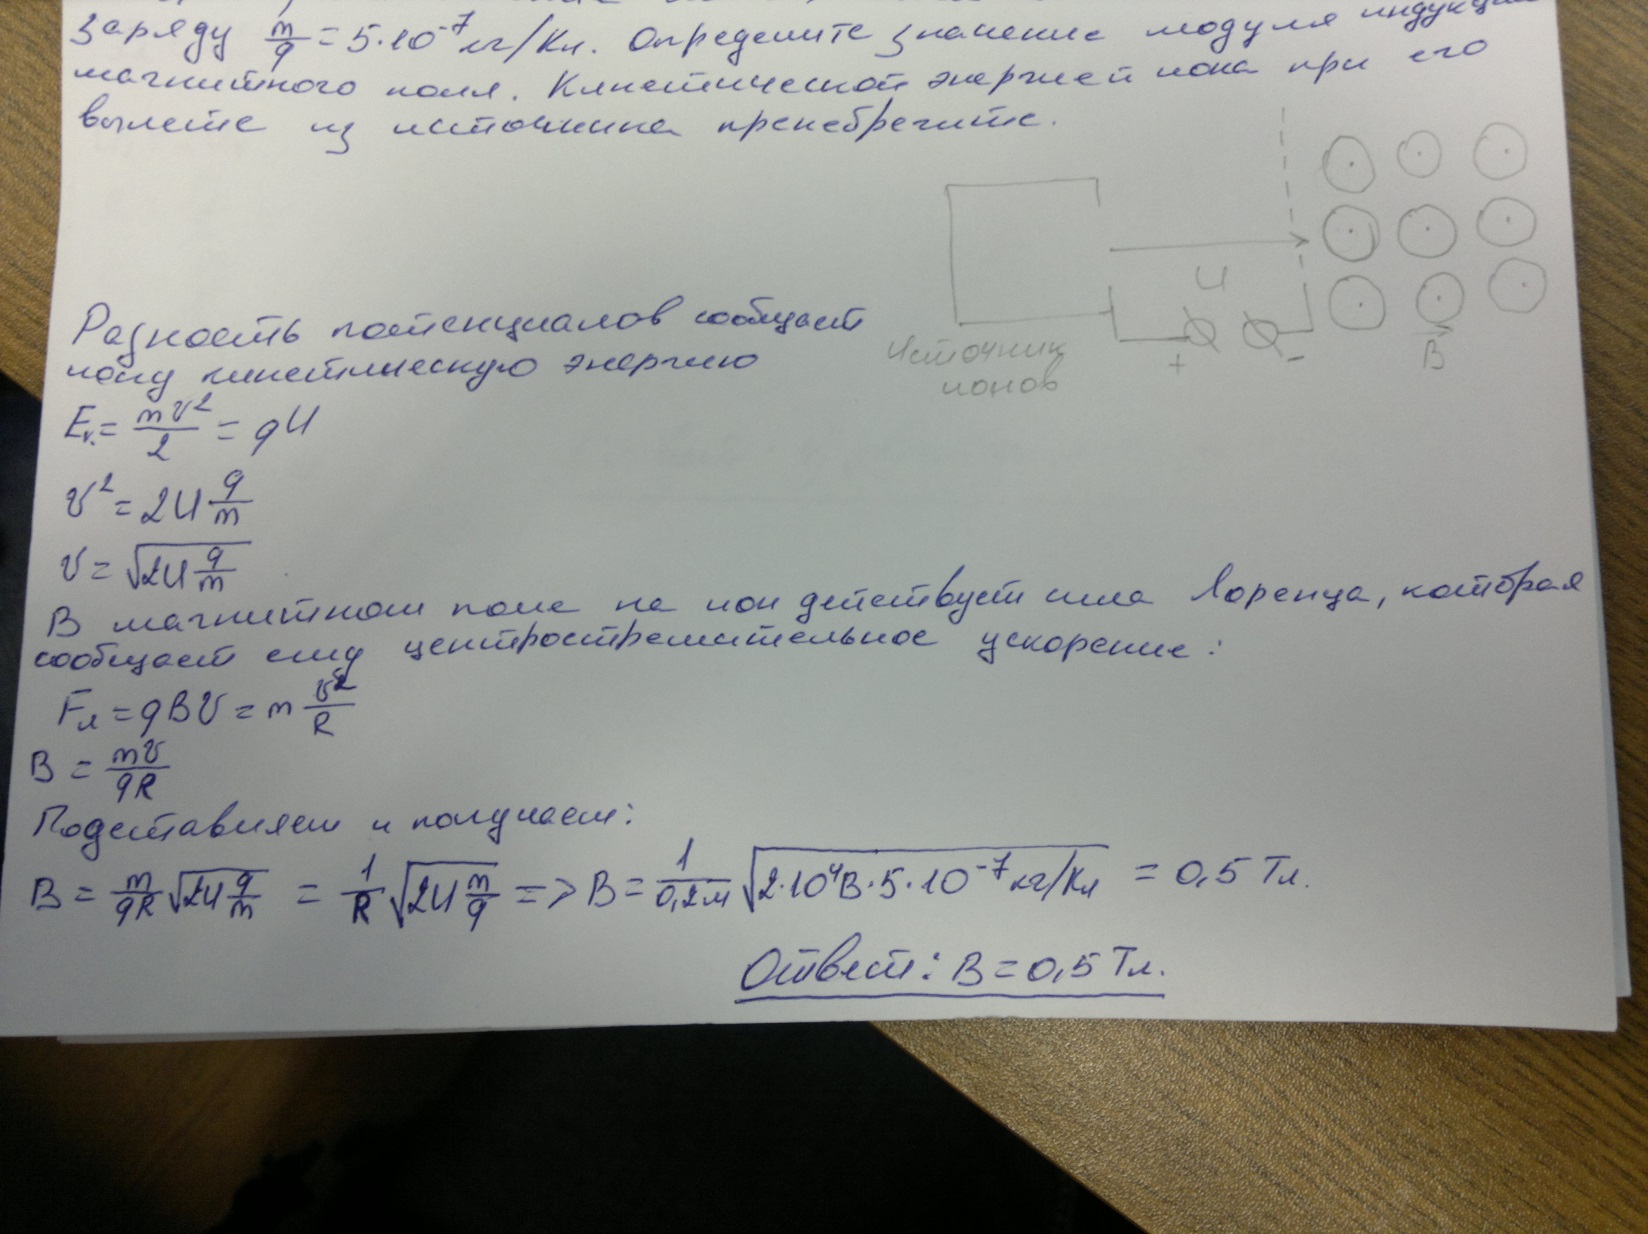 заряду m/q = 5·10⁻⁷ кг/Кл. Определите значение модуля индукции
магнитного поля. Кинетической энергией иона при его
вылете из источника пренебрегите.
U
+ -
B⃗
Источник
ионов
Разность потенциалов сообщает
иону кинетическую энергию
Eк = mv²/2 = qU
v² = 2U q/m
v = √(2U q/m)
В магнитном поле на ион действует сила Лоренца, которая
сообщает ему центростремительное ускорение:
Fл = qBv = m v²/R
B = mv/qR
Подставляем и получаем:
B = m/qR √(2U q/m) = 1/R √(2U m/q) => B = 1/0,2м √(2·10⁴В·5·10⁻⁷кг/Кл) = 0,5 Тл.
Ответ: B = 0,5 Тл.